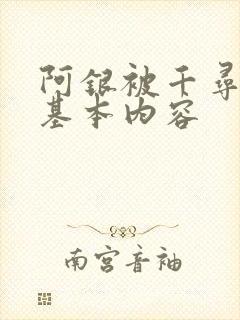 阿银被千寻
基本内容
南宫音袖